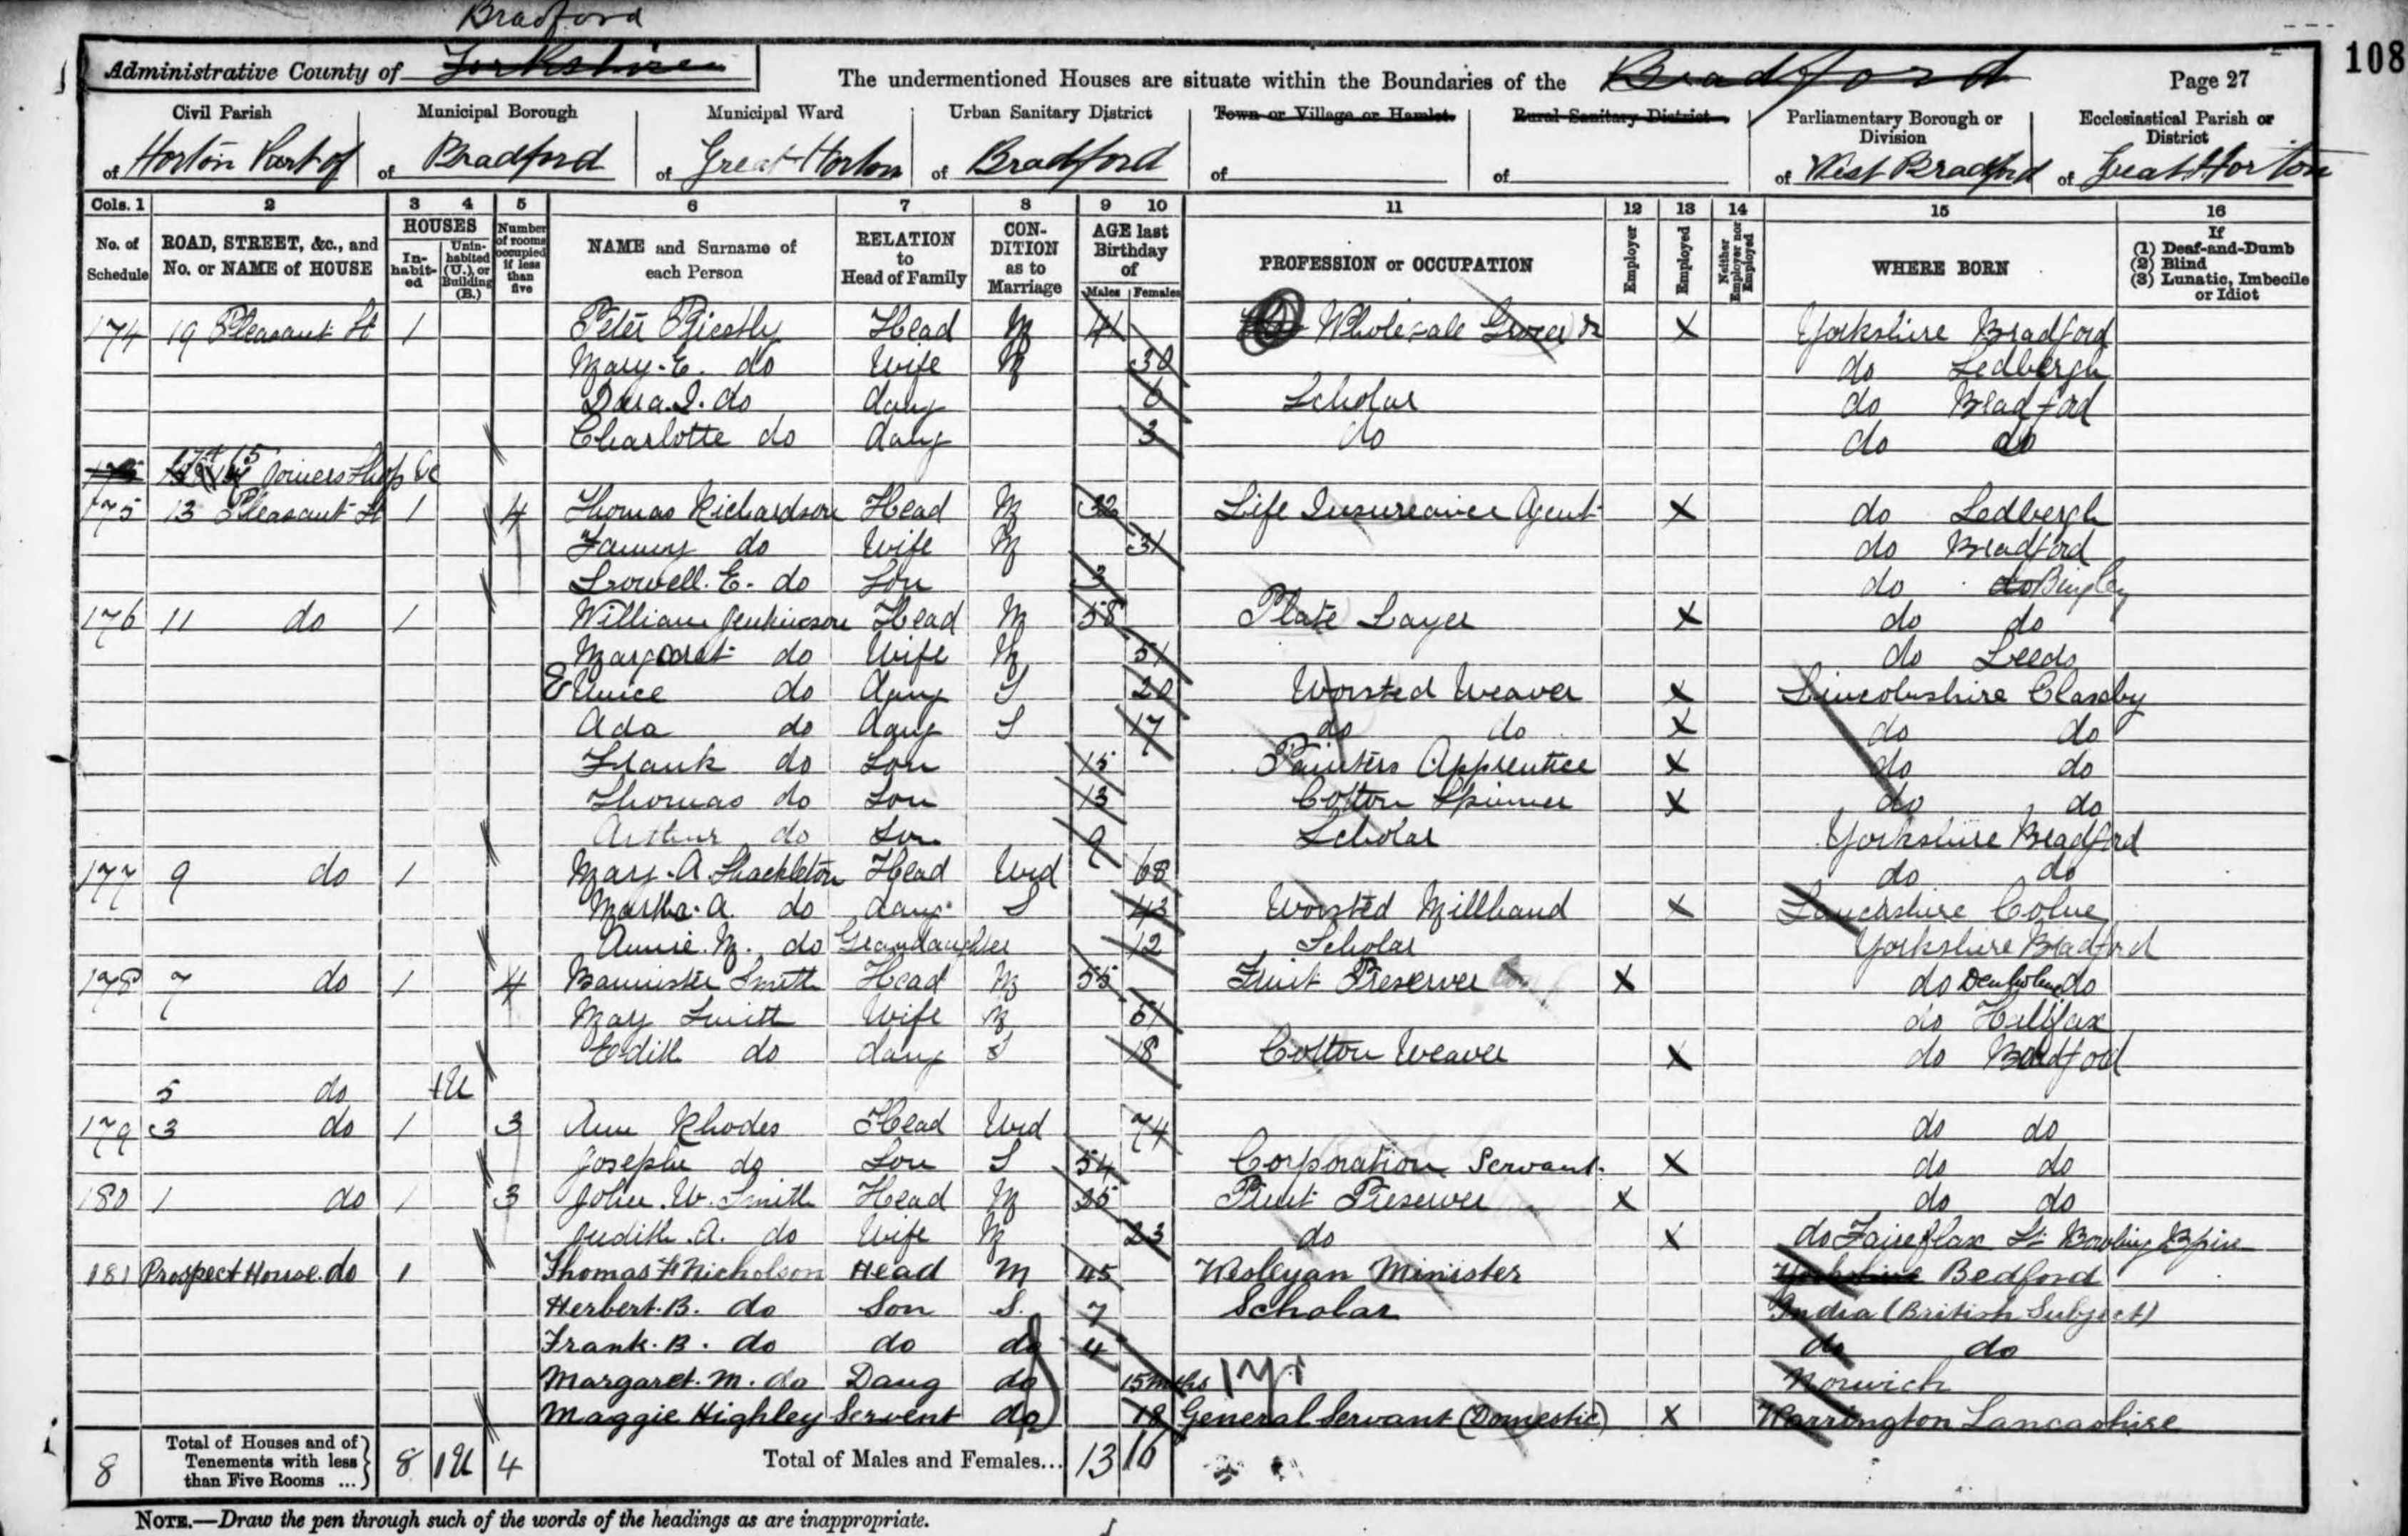 Bradford
108
Administrative County of Yorkshire
The undermentioned Houses are situate within the Boundaries of the Bradford
Page 27
Civil Parish Municipal Borough Municipal Ward Urban Sanitary District Town or Village or Hamlet Rural Sanitary District Parliamentary Borough or Division Ecclesiastical Parish or District
of Horton Part of of Bradford of Great Horton of Bradford of of of West Bradford of Great Horton
Cols. 1 2 3 4 5 6 7 8 9 10 11 12 13 14 15 16
No. of Schedule ROAD, STREET, &c., and No. or NAME of HOUSE HOUSES Inhabited Uninhabited (U.), or Building (B.) Number of rooms occupied if less than five NAME and Surname of each Person RELATION to Head of Family CONDITION as to Marriage AGE last Birthday of Males Females PROFESSION or OCCUPATION Employer Employed Neither Employer nor Employed WHERE BORN If (1) Deaf-and-Dumb (2) Blind (3) Lunatic, Imbecile or Idiot
174 19 Pleasant St 1 Peter Riestly Head M 41 Wholesale Grocer X Yorkshire Bradford
Mary. E. do Wife M 30 do Sedbergh
I. do daug 6 Scholar do Bradford
Charlotte do daug 3 do do do
Joiners Shop &c
175 13 Pleasant St 1 4 Thomas Richardson Head M 32 Life Insureance Agent X do Sedbergh
Fanny do Wife M 31 do Bradford
E. do Son 3 do do Bingley
176 11 do 1 William Jenkinson Head M 58 Plate Layer X do do
Margaret do Wife M 51 do Leeds
Eunice do daug S 20 Worsted Weaver X Lincolnshire Claxby
Ada do daug S 17 do do X do do
Frank do Son 15 Painters Apprentice X do do
Thomas do Son 13 Cotton Spinner X do do
Arthur do Son 9 Scholar Yorkshire Bradford
177 9 do 1 Mary. A. Shackleton Head Wid 68 do do
Martha. A. do daug S 43 Worsted Millhand X Lancashire Colne
Annie. M. do Grandaughter 12 Scholar Yorkshire Bradford
178 7 do 1 4 Bannister Smith Head M 55 Fruit Preserver X do Denholme do
May Smith Wife M 51 do Halifax
Edith do daug S 18 Cotton Weaver X do Bradford
5 do 1U
179 3 do 1 3 Ann Rhodes Head Wid 74 do do
Joseph do Son S 54 Corporation Servant. X do do
180 1 do 1 3 John. W. Smith Head M 25 Fruit Preserver X do do
Judith. A. do Wife M 23 do X do St Bowling
181 Prospect House. do 1 Thomas F Nicholson Head M 45 Wesleyan Minister Yorkshire Bedford
Herbert. B. do Son S. 7 Scholar India (British Subject)
Frank. B. do do do 4 do do
Margaret. M. do Daug do 15 mths Norwich
Maggie Highley Servent do 18 General Servant (Domestic) X Warrington Lancashire
8 Total of Houses and of Tenements with less than Five Rooms ... 8 1U 4 Total of Males and Females... 13 16
NOTE.—Draw the pen through such of the words of the headings as are inappropriate.